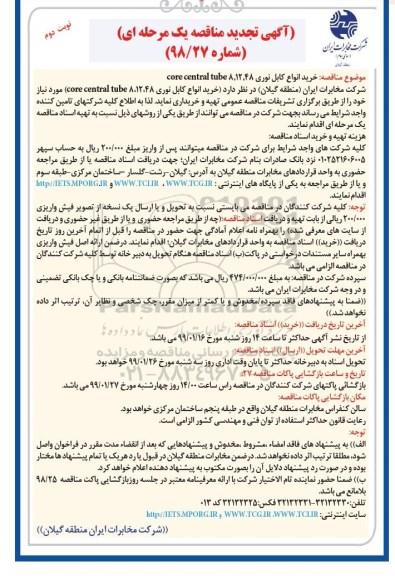 نوبت دوم
(آگهی تجدید مناقصه یک مرحله ای)
(شماره ۹۸/۲۷)
شرکت مخابرات ایران
موضوع مناقصه: خرید انواع کابل نوری core central tube ۸،۱۲،۴۸
شرکت مخابرات ایران (منطقه گیلان) در نظر دارد (خرید انواع کابل نوری core central tube ۸،۱۲،۴۸) مورد نیاز
خود را از طریق برگزاری تشریفات مناقصه عمومی تهیه و خریداری نماید. لذا به اطلاع کلیه شرکتهای تامین کننده
واجد شرایط می رساند بجهت شرکت در مناقصه می توانند از طریق یکی از روشهای ذیل نسبت به تهیه اسناد مناقصه
یک مرحله ای اقدام نمایند.
هزینه تهیه و خرید اسناد مناقصه:
کلیه شرکت های واجد شرایط برای شرکت در مناقصه میتوانند پس از واریز مبلغ ۲۰۰/۰۰۰ ریال به حساب سپهر
۰۱۰۲۵۲۱۶۰۶۰۰۵ نزد بانک صادرات بنام شرکت مخابرات ایران؛ جهت دریافت اسناد مناقصه یا از طریق مراجعه
حضوری به واحد قراردادهای مخابرات منطقه گیلان به آدرس: گیلان-رشت-گلسار -ساختمان مرکزی-طبقه سوم
و یا از طریق مراجعه به یکی از پایگاه های اینترنتی : WWW.TCI.IR ، WWW.TCG.IR و http://IETS.MPORG.IR
اقدام نمایند.
توجه: کلیه شرکت کنندگان در مناقصه می بایستی نسبت به تحویل و یا ارسال یک نسخه از تصویر فیش واریزی
۲۰۰/۰۰۰ ریالی از بابت تهیه و دریافت اسناد مناقصه:(چه از طریق مراجعه حضوری و یا از طریق غیر حضوری و دریافت
از سایت های معرفی شده) را بهمراه نامه اعلام آمادگی جهت حضور در مناقصه را قبل از اتمام آخرین روز تاریخ
دریافت ((خرید)) اسناد مناقصه به واحد قراردادهای مخابرات گیلان؛ اقدام نمایند. درضمن ارائه اصل فیش واریزی
بهمراه سایر مستندات درخواستی در پاکت(ب) اسناد مناقصه هنگام تحویل به دبیر خانه توسط کلیه شرکت کنندگان
در مناقصه الزامی می باشد.
سپرده شرکت در مناقصه: به مبلغ ۴۷۴/۰۰۰/۰۰۰ ریال می باشد که بصورت ضمانتنامه بانکی و یا چک بانکی تضمینی
و در وجه شرکت مخابرات ایران می باشد.
((ضمنا به پیشنهادهای فاقد سپرده/مخدوش و یا کمتر از میزان مقرر، چک شخصی و نظایر آن، ترتیب اثر داده
نخواهد شد.))
آخرین تاریخ دریافت ((خرید)) اسناد مناقصه:
از تاریخ نشر آگهی حداکثر تا ساعت ۱۴ روز شنبه مورخ ۹۹/۰۱/۱۶ می باشد.
آخرین مهلت تحویل ((ارسال)) اسناد مناقصه:
تحویل اسناد به دبیرخانه حداکثر تا پایان وقت اداری روز سه شنبه مورخ ۹۹/۰۱/۲۶ خواهد بود.
تاریخ و ساعت بازگشایی پاکات مناقصه ۲۷:
بازگشائی پاکتهای شرکت کنندگان در مناقصه راس ساعت ۱۴/۰۰ روز چهارشنبه مورخ ۹۹/۰۱/۲۷ می باشد.
مکان بازگشایی پاکات مناقصه:
سالن کنفراس مخابرات منطقه گیلان واقع در طبقه پنجم ساختمان مرکزی خواهد بود.
رعایت قانون حداکثر استفاده از توان فنی و مهندسی کشور الزامی است.
توجه:
الف)) به پیشنهاد های فاقد امضاء ،مشروط ،مخدوش و پیشنهادهایی که بعد از انقضاء مدت مقرر در فراخوان واصل
شود، مطلقا ترتیب اثر داده نخواهد شد. درضمن مخابرات منطقه گیلان در قبول یا رد هر یک یا تمام پیشنهاد ها مختار
بوده و در صورت رد پیشنهاد دلایل آن را بصورت مکتوب به پیشنهاد دهنده اعلام خواهد کرد.
ب)) ضمنا حضور نماینده تام الاختیار شرکت با ارائه معرفینامه معتبر در جلسه روزبازگشایی پاکت مناقصه ۹۸/۲۵
بلامانع می باشد.
تلفن:۳۲۱۳۲۳۳۰-۳۲۱۳۲۳۳۱ فکس:۳۲۱۳۲۳۲۵ کد ۰۱۳
سایت اینترنتی: WWW.TCG.IR ،WWW.TCI.IR و http://IETS.MPORG.IR
((شرکت مخابرات ایران منطقه گیلان))